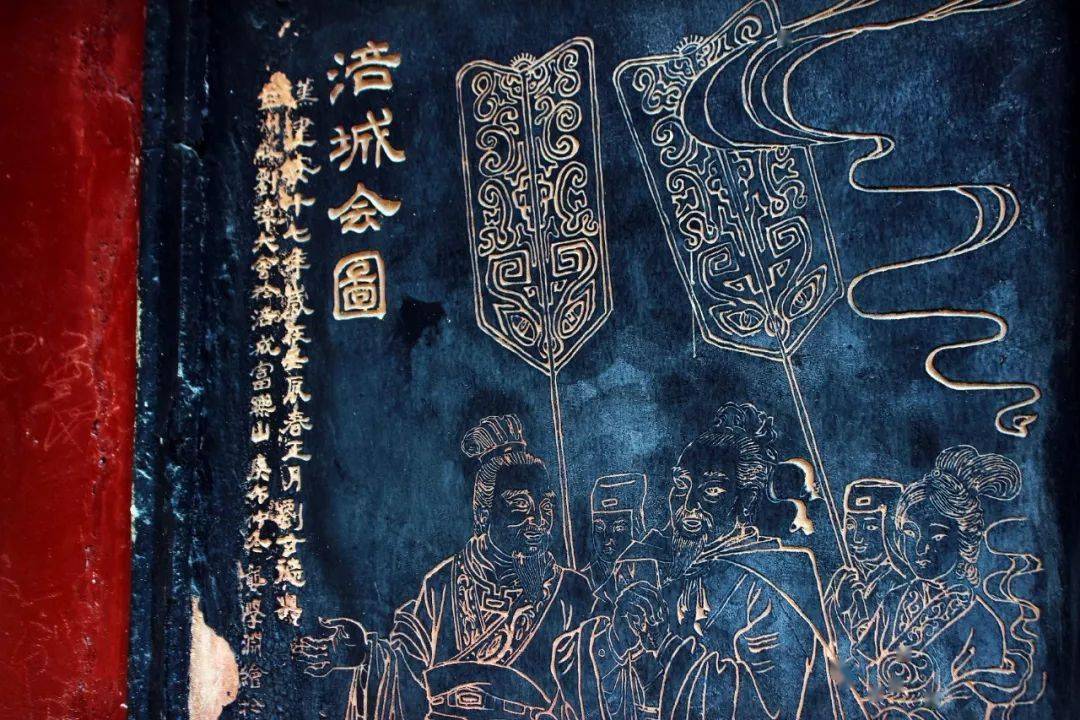 涪城会圖
漢建安十七年歲在壬辰春正月劉玄德與
益州牧劉璋大會於涪城富樂山